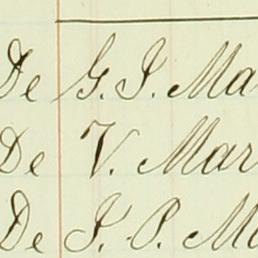 De G. I. Ma
De V. Mar
De I. P. M